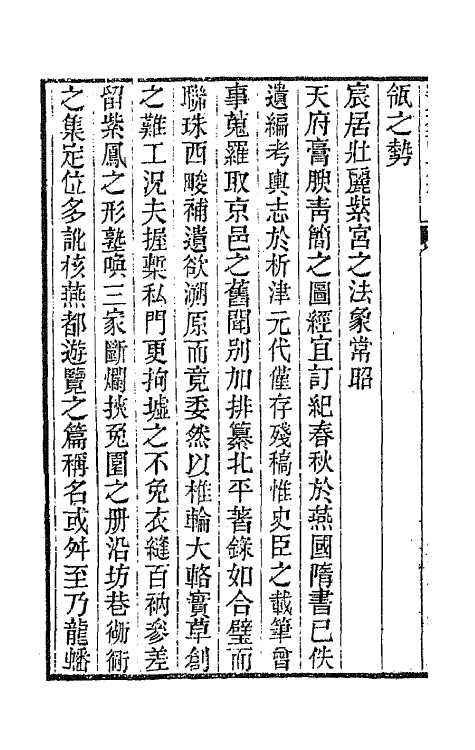 瓴之勢
宸居壯麗紫宮之法象常昭
天府膏腴靑簡之圖經宜訂紀春秋於燕國隋書已佚
遺編考輿志於析津元代僅存殘稿惟史臣之載筆曾
事蒐羅取京邑之舊聞别加排纂北平著錄如合璧而
聯珠西畯補遺欲溯原而竟委然以椎輪大輅實草創
之難工況夫握槧私門更拘墟之不免衣縫百衲參差
留紫鳳之形塾喚三家斷爛挾兎園之册沿坊巷衚衕
之集定位多訛核燕都遊覽之篇稱名或舛至乃龍蟠